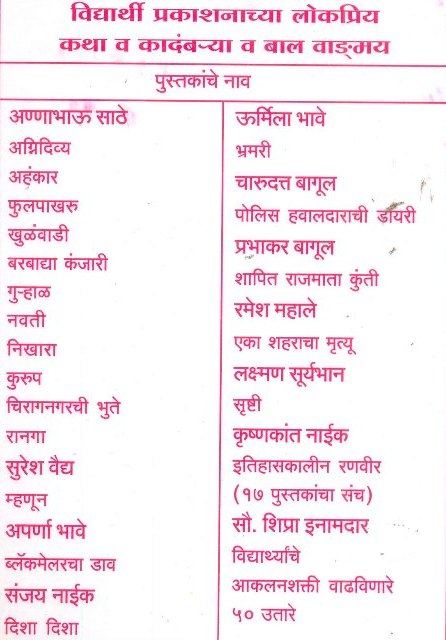 विद्यार्थी प्रकाशनाच्या लोकप्रिय
कथा व कादंबऱ्या व बाल वाङ्मय
पुस्तकांचे नाव
अण्णाभाऊ साठे
अग्निदिव्य
अहंकार
फुलपाखरु
खुळंवाडी
बरबाद्या कंजारी
गुऱ्हाळ
नवती
निखारा
कुरुप
चिरागनगरची भुते
रानगा
सुरेश वैद्य
म्हणून
अपर्णा भावे
ब्लॅकमेलरचा डाव
संजय नाईक
दिशा दिशा
ऊर्मिला भावे
भ्रमरी
चारुदत्त बागूल
पोलिस हवालदाराची डायरी
प्रभाकर बागूल
शापित राजमाता कुंती
रमेश महाले
एका शहराचा मृत्यू
लक्ष्मण सूर्यभान
सृष्टी
कृष्णकांत नाईक
इतिहासकालीन रणवीर
(१७ पुस्तकांचा संच)
सौ. शिप्रा इनामदार
विद्यार्थ्यांचे
आकलनशक्ती वाढविणारे
५० उतारे